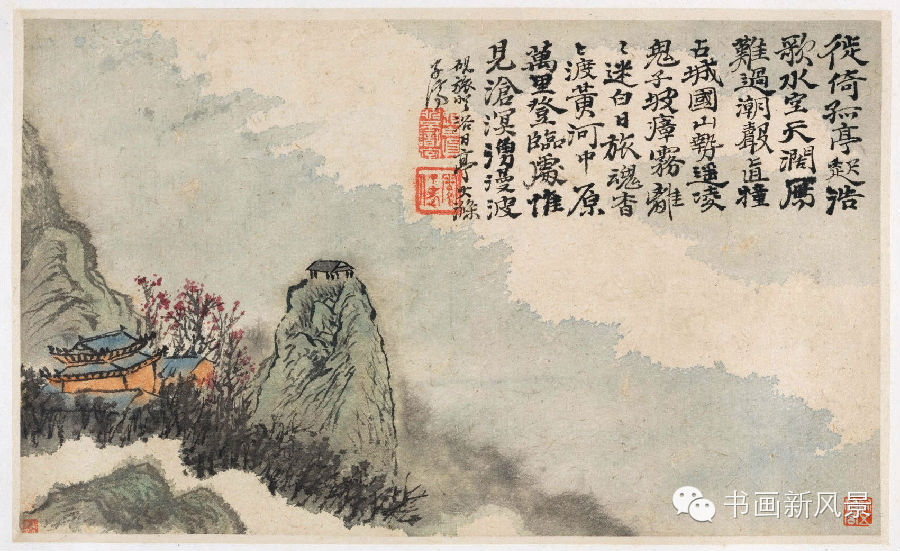 徙倚孤亭趂浩
歌水空天濶鴈
難過潮聲直撞
古城國山勢遥凌
鬼子坡瘴霧離
々迷白日旅魂杳
々渡黃河中原
萬里登臨處惟
見滄溟湧漫波
硯旅登浴日亭大滌
子濟
书画新风景